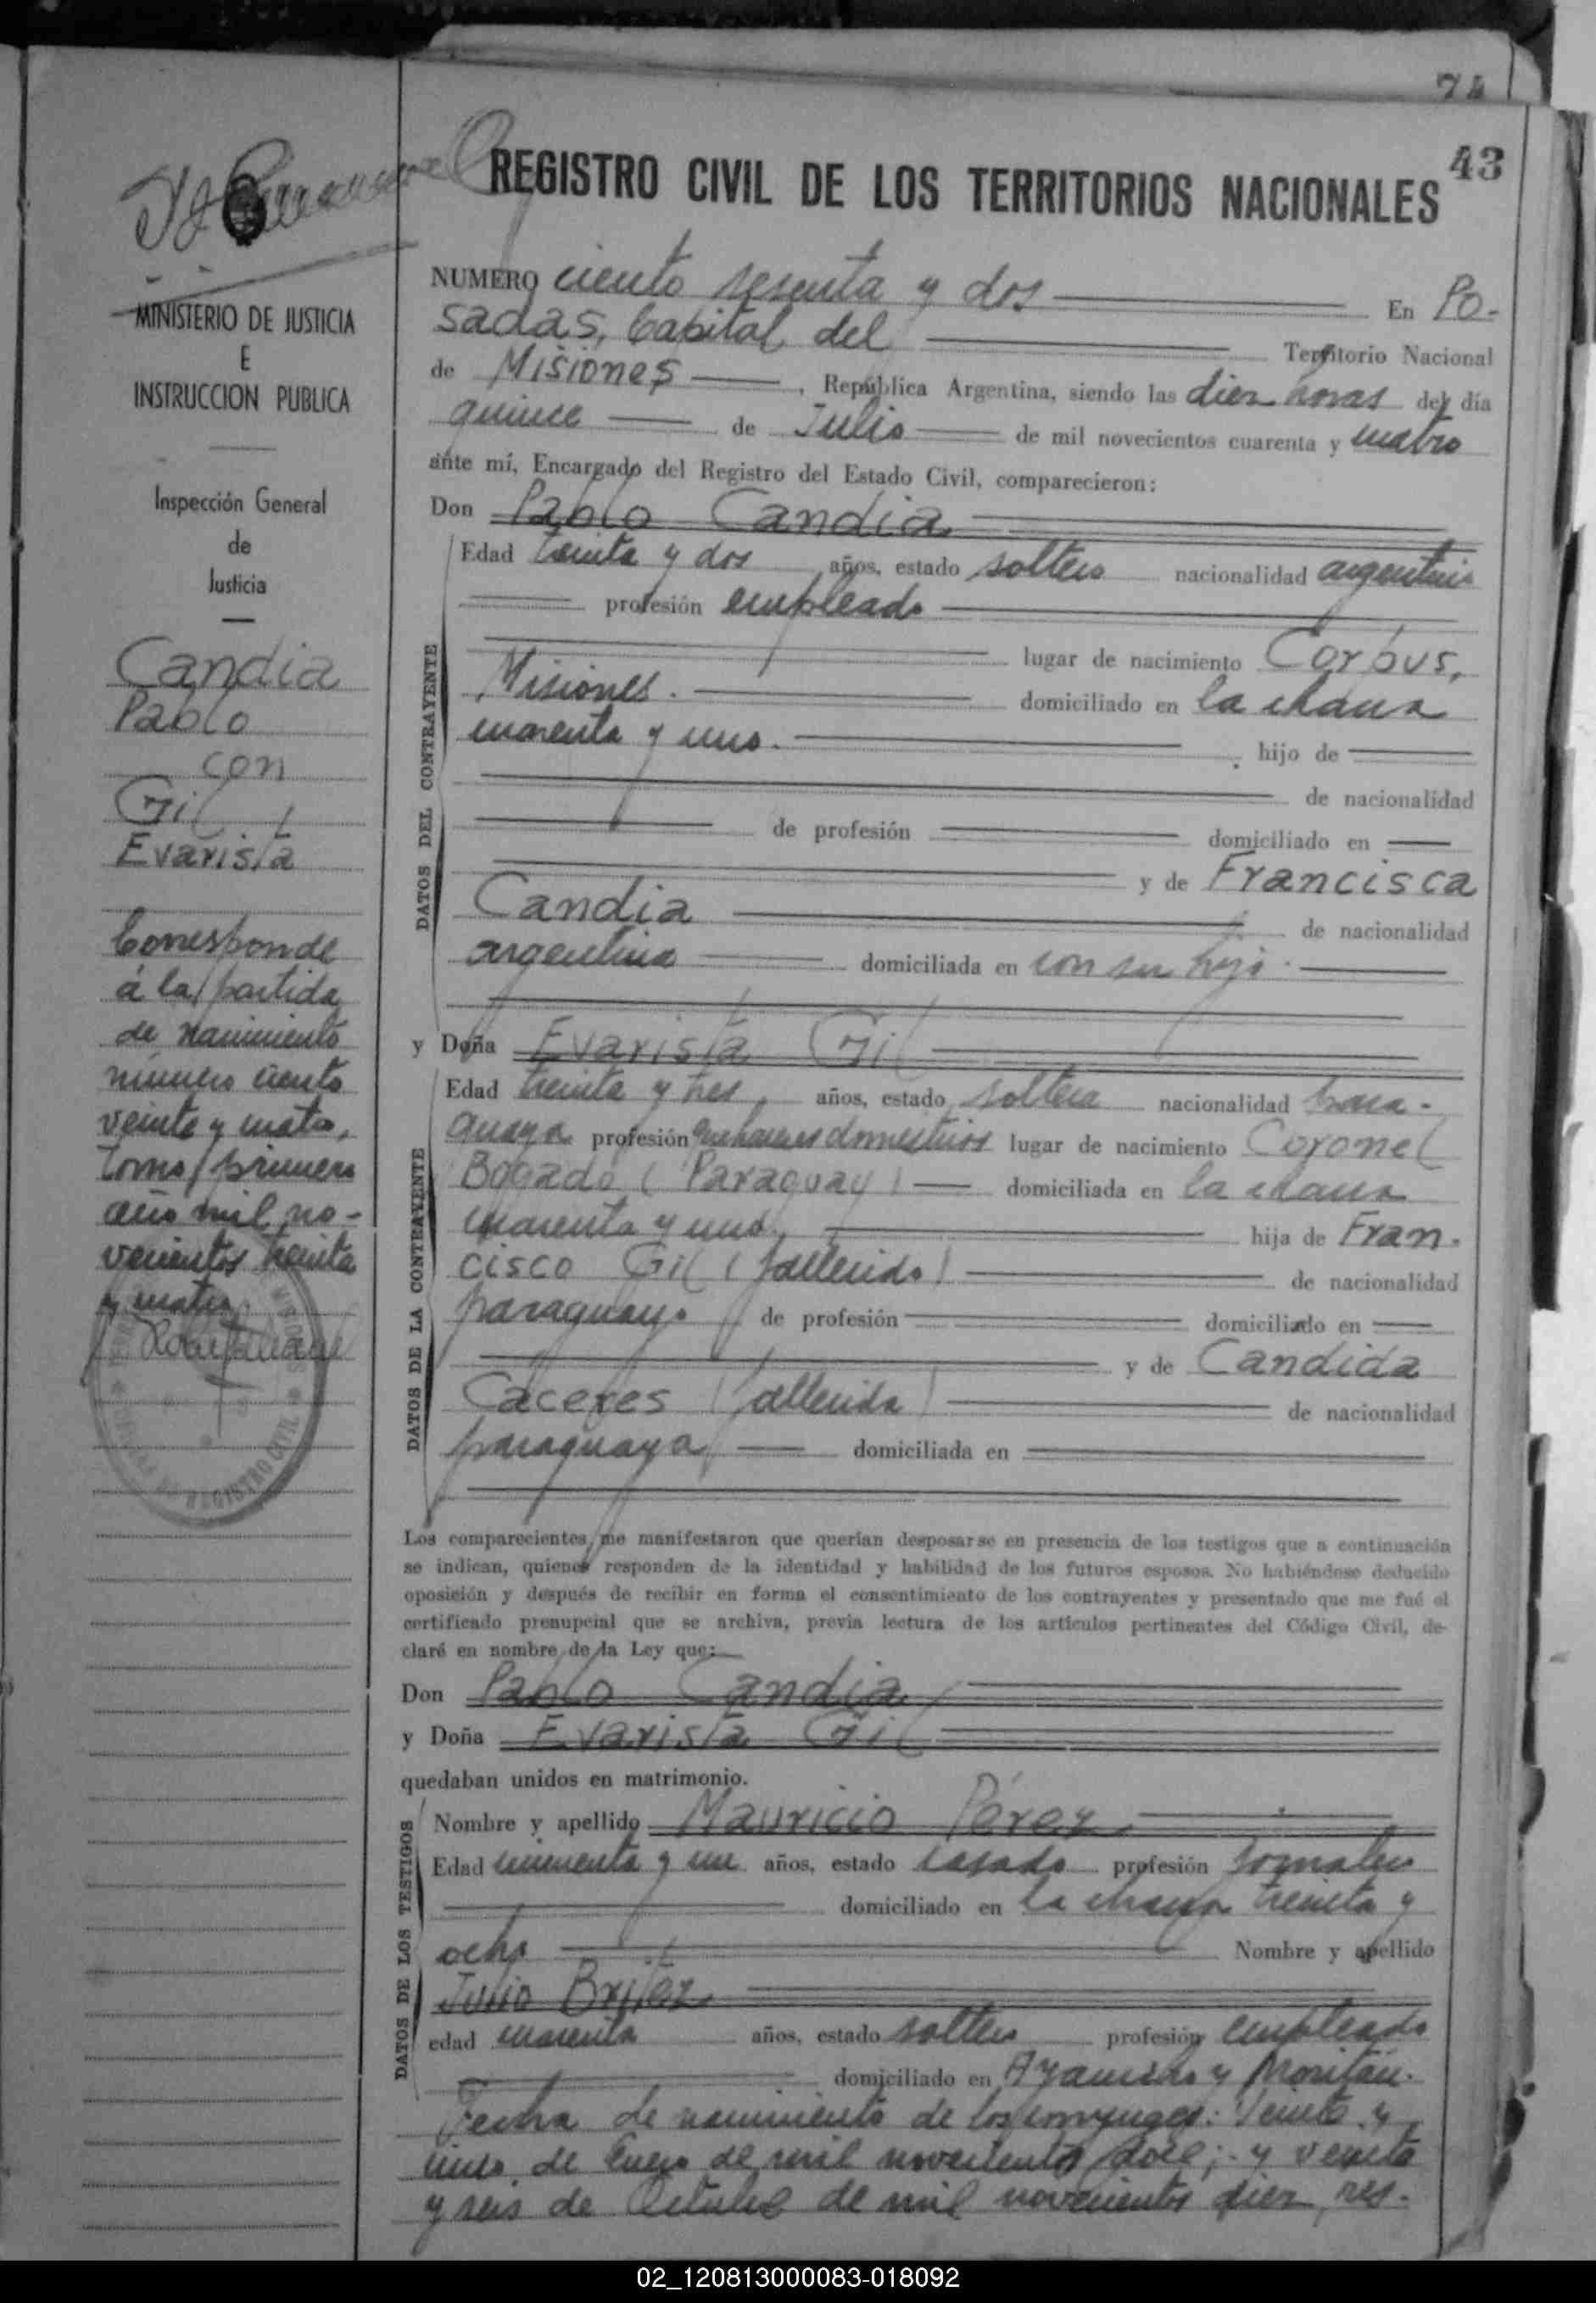 74
43
REGISTRO CIVIL DE LOS TERRITORIOS NACIONALES
MINISTERIO DE JUSTICIA
E
INSTRUCCION PUBLICA
Inspección General
de
Justicia
Candia
Pablo
con
Gil
Evarista
Corresponde
á la partida
de nacimiento
número ciento
veinte y cuatro,
tomo primero
año mil no-
vecientos treinta
y cuatro
REGISTRO CIVIL
NUMERO ciento sesenta y dos En Po-
sadas, Capital del Territorio Nacional
de Misiones, República Argentina, siendo las diez horas del día
quince de Julio de mil novecientos cuarenta y cuatro
ante mí, Encargado del Registro del Estado Civil, comparecieron:
Don Pablo Candia
DATOS DEL CONTRAYENTE
Edad treinta y dos años, estado soltero nacionalidad argentino
profesión empleado
lugar de nacimiento Corpus,
Misiones. domiciliado en la chacra
cuarenta y uno. hijo de
de nacionalidad
de profesión domiciliado en
y de Francisca
Candia de nacionalidad
argentina domiciliada en con su hijo.
y Doña Evarista Gil
DATOS DE LA CONTRAYENTE
Edad treinta y tres, años, estado soltera nacionalidad para-
guaya profesión quehaceres domesticos lugar de nacimiento Coronel
Bogado (Paraguay) domiciliada en la chacra
cuarenta y uno. hija de Fran-
cisco Gil (fallecido) de nacionalidad
paraguayo de profesión domiciliado en
y de Candida
Caceres (fallecida) de nacionalidad
paraguaya domiciliada en
Los comparecientes, me manifestaron que querían desposarse en presencia de los testigos que a continuación
se indican, quienes responden de la identidad y habilidad de los futuros esposos. No habiéndose deducido
oposición y después de recibir en forma el consentimiento de los contrayentes y presentado que me fué el
certificado prenupcial que se archiva, previa lectura de los artículos pertinentes del Código Civil, de-
claré en nombre de la Ley que:
Don Pablo Candia
y Doña Evarista Gil
quedaban unidos en matrimonio.
DATOS DE LOS TESTIGOS
Nombre y apellido Mauricio Pérez
Edad cincuenta y un años, estado casado profesión jornalero
domiciliado en la chacra treinta y
ocho Nombre y apellido
Julio Britez
edad cuarenta años, estado soltero profesión empleado
domiciliado en Ayacucho y Moritán.
Fecha de nacimiento de los conyuges: Veinte y
uno de Enero de mil novecientos doce; y veinte
y seis de Octubre de mil novecientos diez, res-
02_120813000083-018092